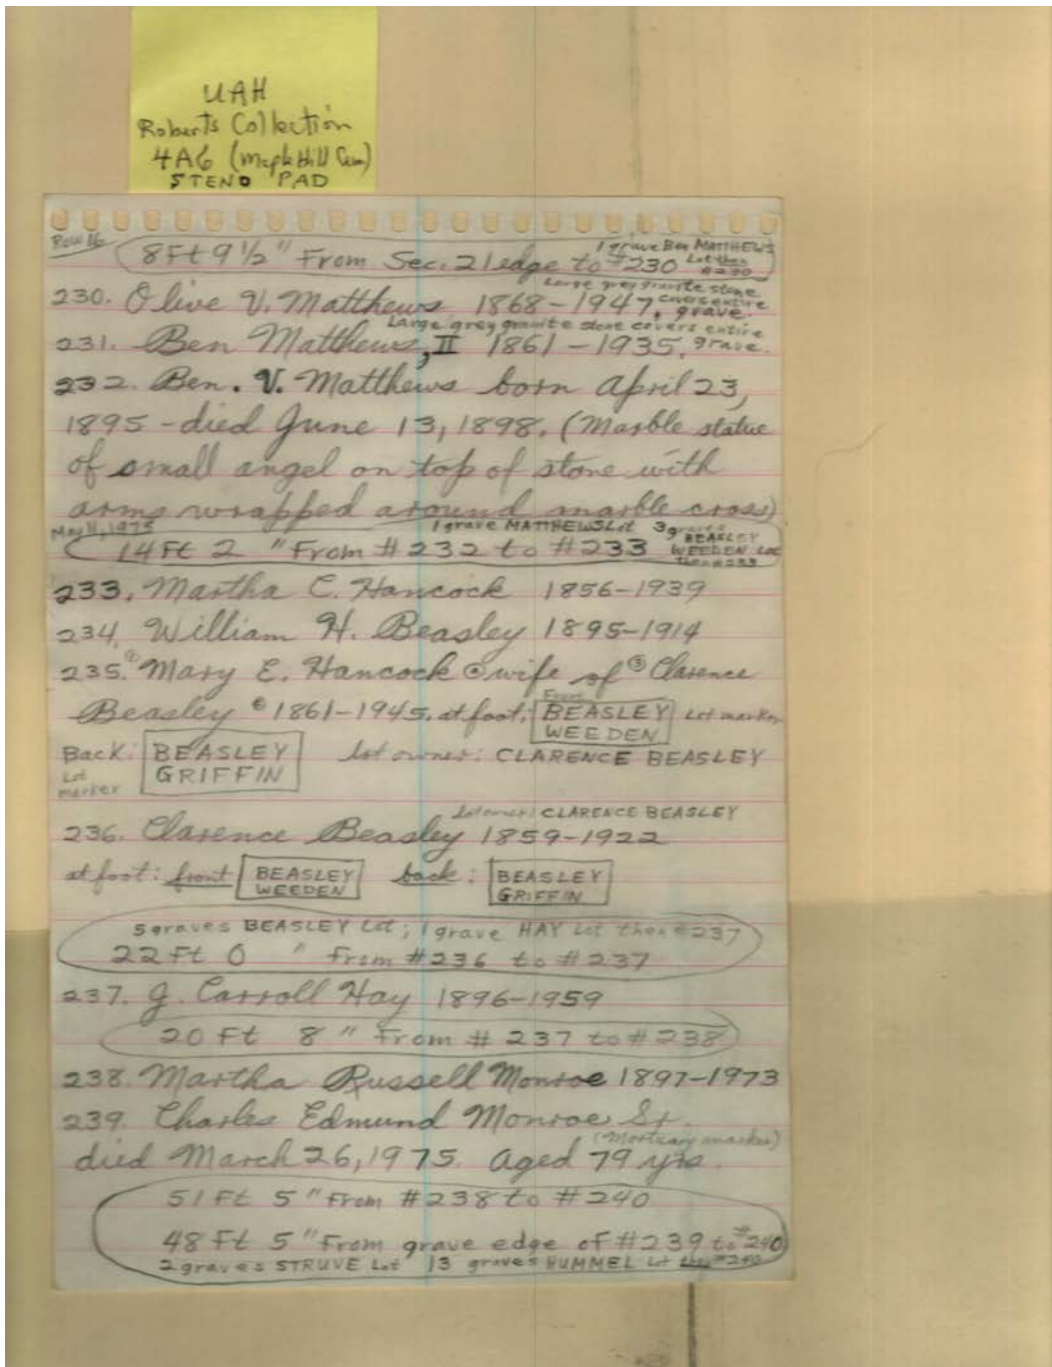 UAH
Roberts Collection
4A6 (Maple Hill Cem)
STENO PAD
Row 16
1 grave Ben MATTHEWS
Lot then
#230
8Ft 9 1/2" From Sec. 21 edge to #230
Large grey granite stone
230. Olive V. Matthews 1868-1947, covers entire
grave.
Large grey granite stone covers entire
231. Ben Matthews, II 1861-1935. grave.
232. Ben. V. Matthews born April 23,
1895 - died June 13, 1898. (Marble statue
of small angel on top of stone with
arms wrapped around marble cross)
May 11, 1975
1 grave MATTHEWS Lot 3 graves
BEASLEY
WEEDEN Lot
then #233
14Ft 2 " From #232 to #233
233. Martha C. Hancock 1856-1939
234. William H. Beasley 1895-1914
235. ① Mary E. Hancock ② wife of ③ Clarence
Beasley 1861-1945. at foot: Front
BEASLEY Lot marker
WEEDEN
Back: BEASLEY lot owner: CLARENCE BEASLEY
Lot GRIFFIN
marker
lot owner: CLARENCE BEASLEY
236. Clarence Beasley 1859-1922
at foot: front BEASLEY back: BEASLEY
WEEDEN GRIFFIN
5 graves BEASLEY Lot; 1 grave HAY Lot then #237
22 Ft 0 " From #236 to #237
237. J. Carroll Hay 1896-1959
20 Ft 8 " From # 237 to #238
238. Martha Russell Monroe 1897-1973
239. Charles Edmund Monroe Sr.
(Mortuary marker)
died March 26, 1975. Aged 79 yrs.
51 Ft 5 " From #238 to #240
48 Ft 5 " From grave edge of #239 to #240
2 graves STRUVE Lot 13 graves HUMMEL Lot then #240